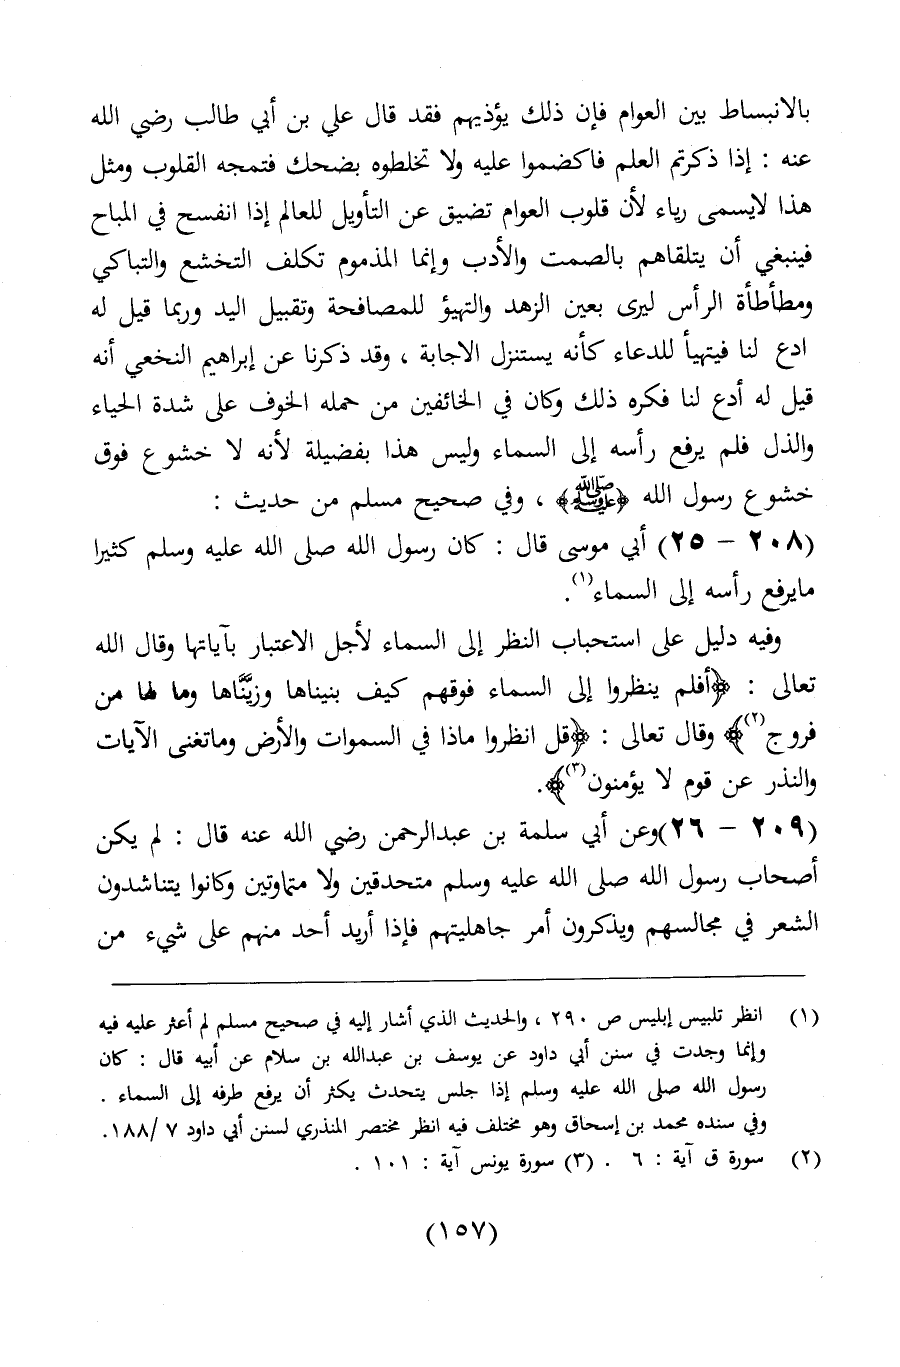 بالانبساط بين العوام فإن ذلك يؤذيهم فقد قال علي بن أبي طالب رضي الله
عنه : إذا ذكرتم العلم فاكضموا عليه ولا تخلطوه بضحك فتمجه القلوب ومثل
هذا لايسمى رياء لأن قلوب العوام تضيق عن التأويل للعالم إذا انفسح في المباح
فينبغي أن يتلقاهم بالصمت والأدب وإنما المذموم تكلف التخشع والتباكي
ومطأطأة الرأس ليرى بعين الزهد والتهيؤ للمصافحة وتقبيل اليد وربما قيل له
ادع لنا فيتهيأ للدعاء كأنه يستنزل الاجابة ، وقد ذكرنا عن إبراهيم النخعي أنه
قيل له أدع لنا فكره ذلك وكان في الخائفين من حمله الخوف على شدة الحياء
والذل فلم يرفع رأسه إلى السماء وليس هذا بفضيلة لأنه لا خشوع فوق
خشوع رسول الله ﴿ﷺ﴾ ، وفي صحيح مسلم من حديث :
(٢٠٨ – ٢٥) أبي موسى قال : كان رسول الله صلى الله عليه وسلم كثيرا
مايرفع رأسه إلى السماء(١).
وفيه دليل على استحباب النظر إلى السماء لأجل الاعتبار بآياتها وقال الله
تعالى : ﴿أفلم ينظروا إلى السماء فوقهم كيف بنيناها وزيَّنَّاها وما لها من
فروج(٢)﴾ وقال تعالى : ﴿قل انظروا ماذا في السموات والأرض وماتغنى الآيات
والنذر عن قوم لا يؤمنون(٣)﴾.
(٢٠٩ – ٢٦)وعن أبي سلمة بن عبدالرحمن رضي الله عنه قال : لم يكن
أصحاب رسول الله صلى الله عليه وسلم متحدقين ولا متماوتين وكانوا يتناشدون
الشعر في مجالسهم ويذكرون أمر جاهليتهم فإذا أريد أحد منهم على شيء من
(١) انظر تلبيس إبليس ص ٢٩٠ ، والحديث الذي أشار إليه في صحيح مسلم لم أعثر عليه فيه
وإنما وجدت في سنن أبي داود عن يوسف بن عبدالله بن سلام عن أبيه قال : كان
رسول الله صلى الله عليه وسلم إذا جلس يتحدث يكثر أن يرفع طرفه إلى السماء .
وفي سنده محمد بن إسحاق وهو مختلف فيه انظر مختصر المنذري لسنن أبي داود ٧ /١٨٨.
(٢) سورة ق آية : ٦ . (٣) سورة يونس آية : ١٠١ .
(١٥٧)